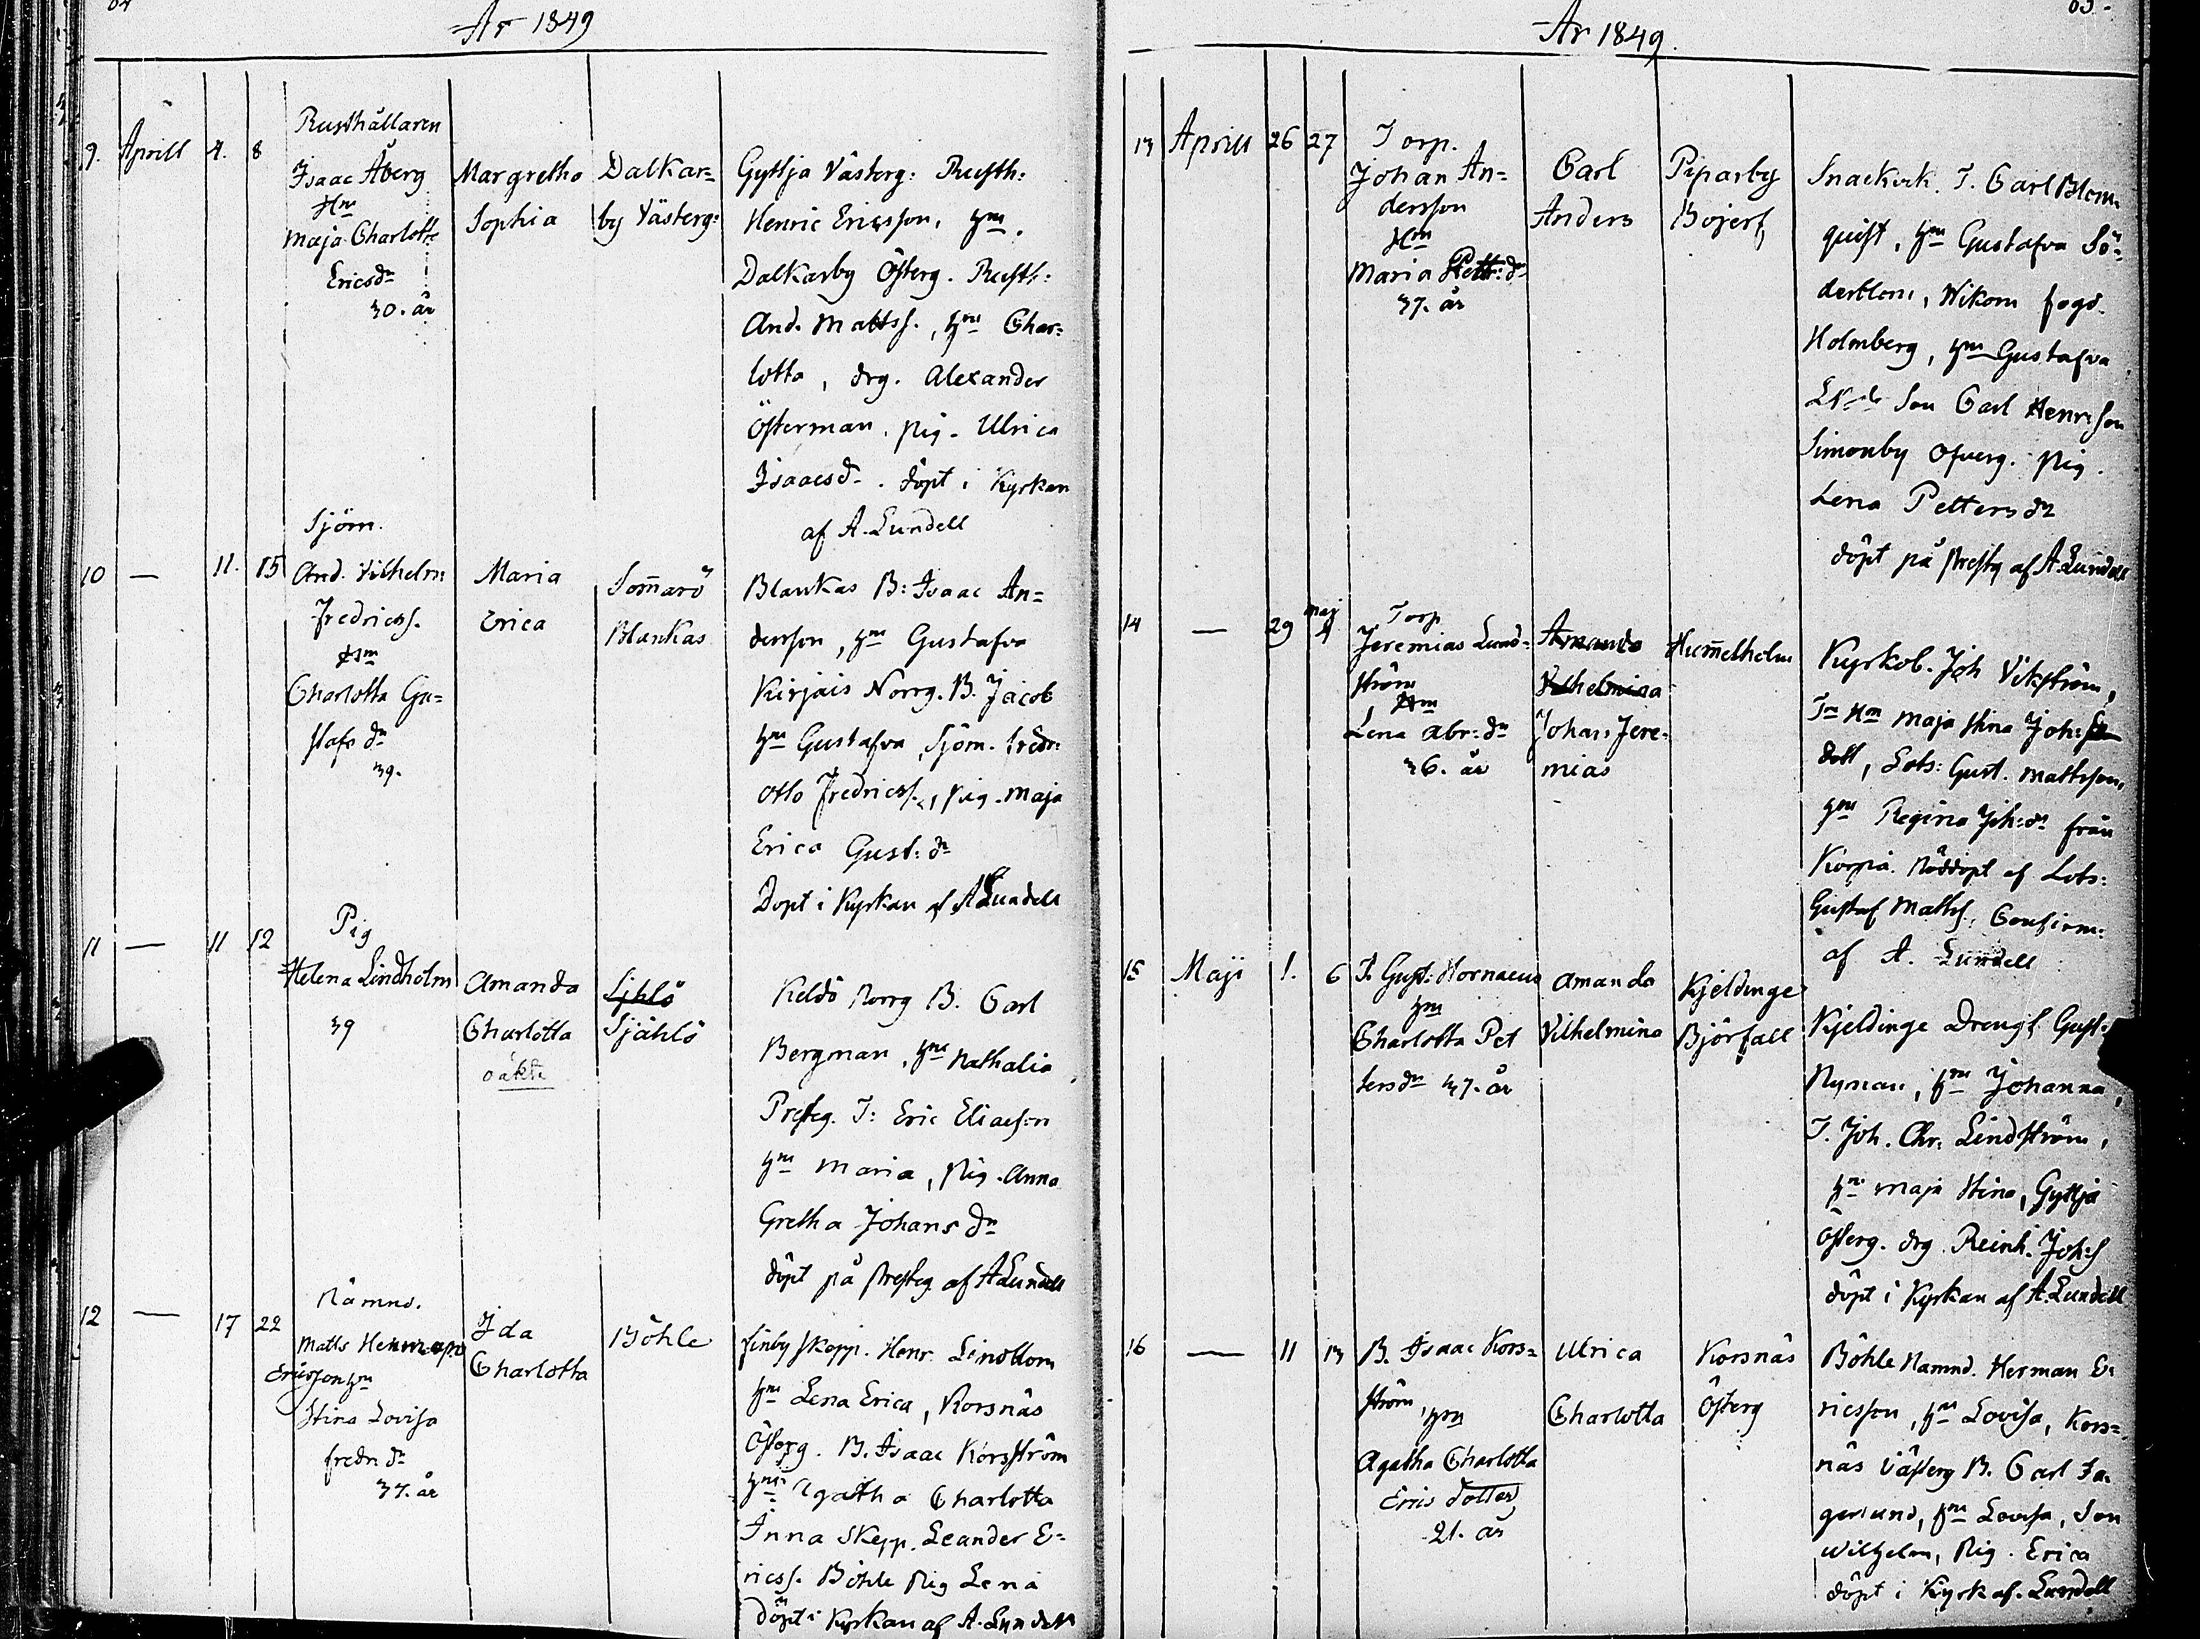 År 1849
9. Aprill 4. 8
Rusthållaren
Isaac Åberg
Hm
Maja Charlott
Ericsdr
30. år
Margretha
Sophia
Dalkar=
by Västerg:
Gyttja Västerg: Rusth:
Henric Ericsson, hm.
Dalkarby Österg. Rusth:
And. Matts., hm Char=
lotta, drg. Alexander
Österman. pig. Ulrica
Isaacsdr. döpt i Kyrkan
af A. Lundell
10 — 11. 15
Sjöm.
And. Vilhelm
Fredricss.
Hm
Charlotta Gu=
stafs dr
39.
Maria
Erica
Somarö
Blankas
Blankas B: Isaac An=
dersson, hm Gustafva
Kirjais Norrg. B. Jacob
hm Gustafva, Sjöm.
Otto Fredricss., pig. Maja
Erica Gust: dr
Döpt i Kyrkan af A Lundell
11 — 11 12
Pig
Helena Lindholm
39
Amanda
Charlotta
oäkta
Sjhlö
Själö
Keldö Norrg B. Carl
Bergman, hm Nathalia,
Presteg. T: Eric Eliaeson
hm Maria, Pig. Anna
Gretha Johans dr
döpt på presteg af A Lundell
12 — 17 22
Nämnd.
Matts Herman
Ericsson hm
Stina Lovisa
fredr dr
37. år
Ida
Charlotta
Böhle
finby skepp. Henr. Lindblom
hm Lena Erica, Korsnäs
Österg. B. Isaac Korsström
hm Agatha Charlotta
Inna Skepp. Leander E=
ricss. Böhle Pig Lena
döpt i Kyrkan af A. Lundell
År 1849.
13 Aprill 26 27
Torp.
Johan An=
dersson
Hm
Maria Pett: dr
37. år
Carl
Anders
Piparby
Bojers
Snäckvik. T. Carl Blom
quist, hm Gustafva Sö=
derblom, Wikom fogd.
Holmberg, hm Gustafva
son Carl Henrsson
Simonby Öfverg. pig.
Lena Petters dr
döpt på presteg af A Lundell
14 — 29 maj 4
Torp
Jeremias Lund=
ström
Hm
Lena Abr: dr
36. år
Amanda
Vilhelmina
Johan Jere=
mias
Humelholm
Kyrkob. Joh Vikström,
Maja Stina Joh:
dott, Lots: Gust. Mattsson,
hm Regina Joh: dr från
Korpå. Nöddöpt af Lots:
Gustaf Matts. Confirm:
af A. Lundell
15 Maji 1. 6
T. Gust. Hornaeus
hm
Charlotta Pet
tersdr 37. år
Amanda
Vilhelmina
Kjeldinge
Björfall
Kjeldinge Drengs. Gust.
Nyman, hm Johanna,
T. Joh. Chr: Lindström,
hm Maja Stina, Gyttja
Österg. drg. Reinh. Joh:s
döpt i Kyrkan af A. Lundell
16 — 11 13
B. Isaac Kors=
ström, hm
Agatha Charlotta
Erics dotter
21. år
Ulrica
Charlotta
Korsnäs
Österg
Böhle Nämnd. Herman E=
ricsson, hm Lovisa, Kors=
näs Västerg B. Carl Fa=
gerlund, hm Lovisa, Son
Wilhelm, Pig. Erica
döpt i Kyrk af. Lundell